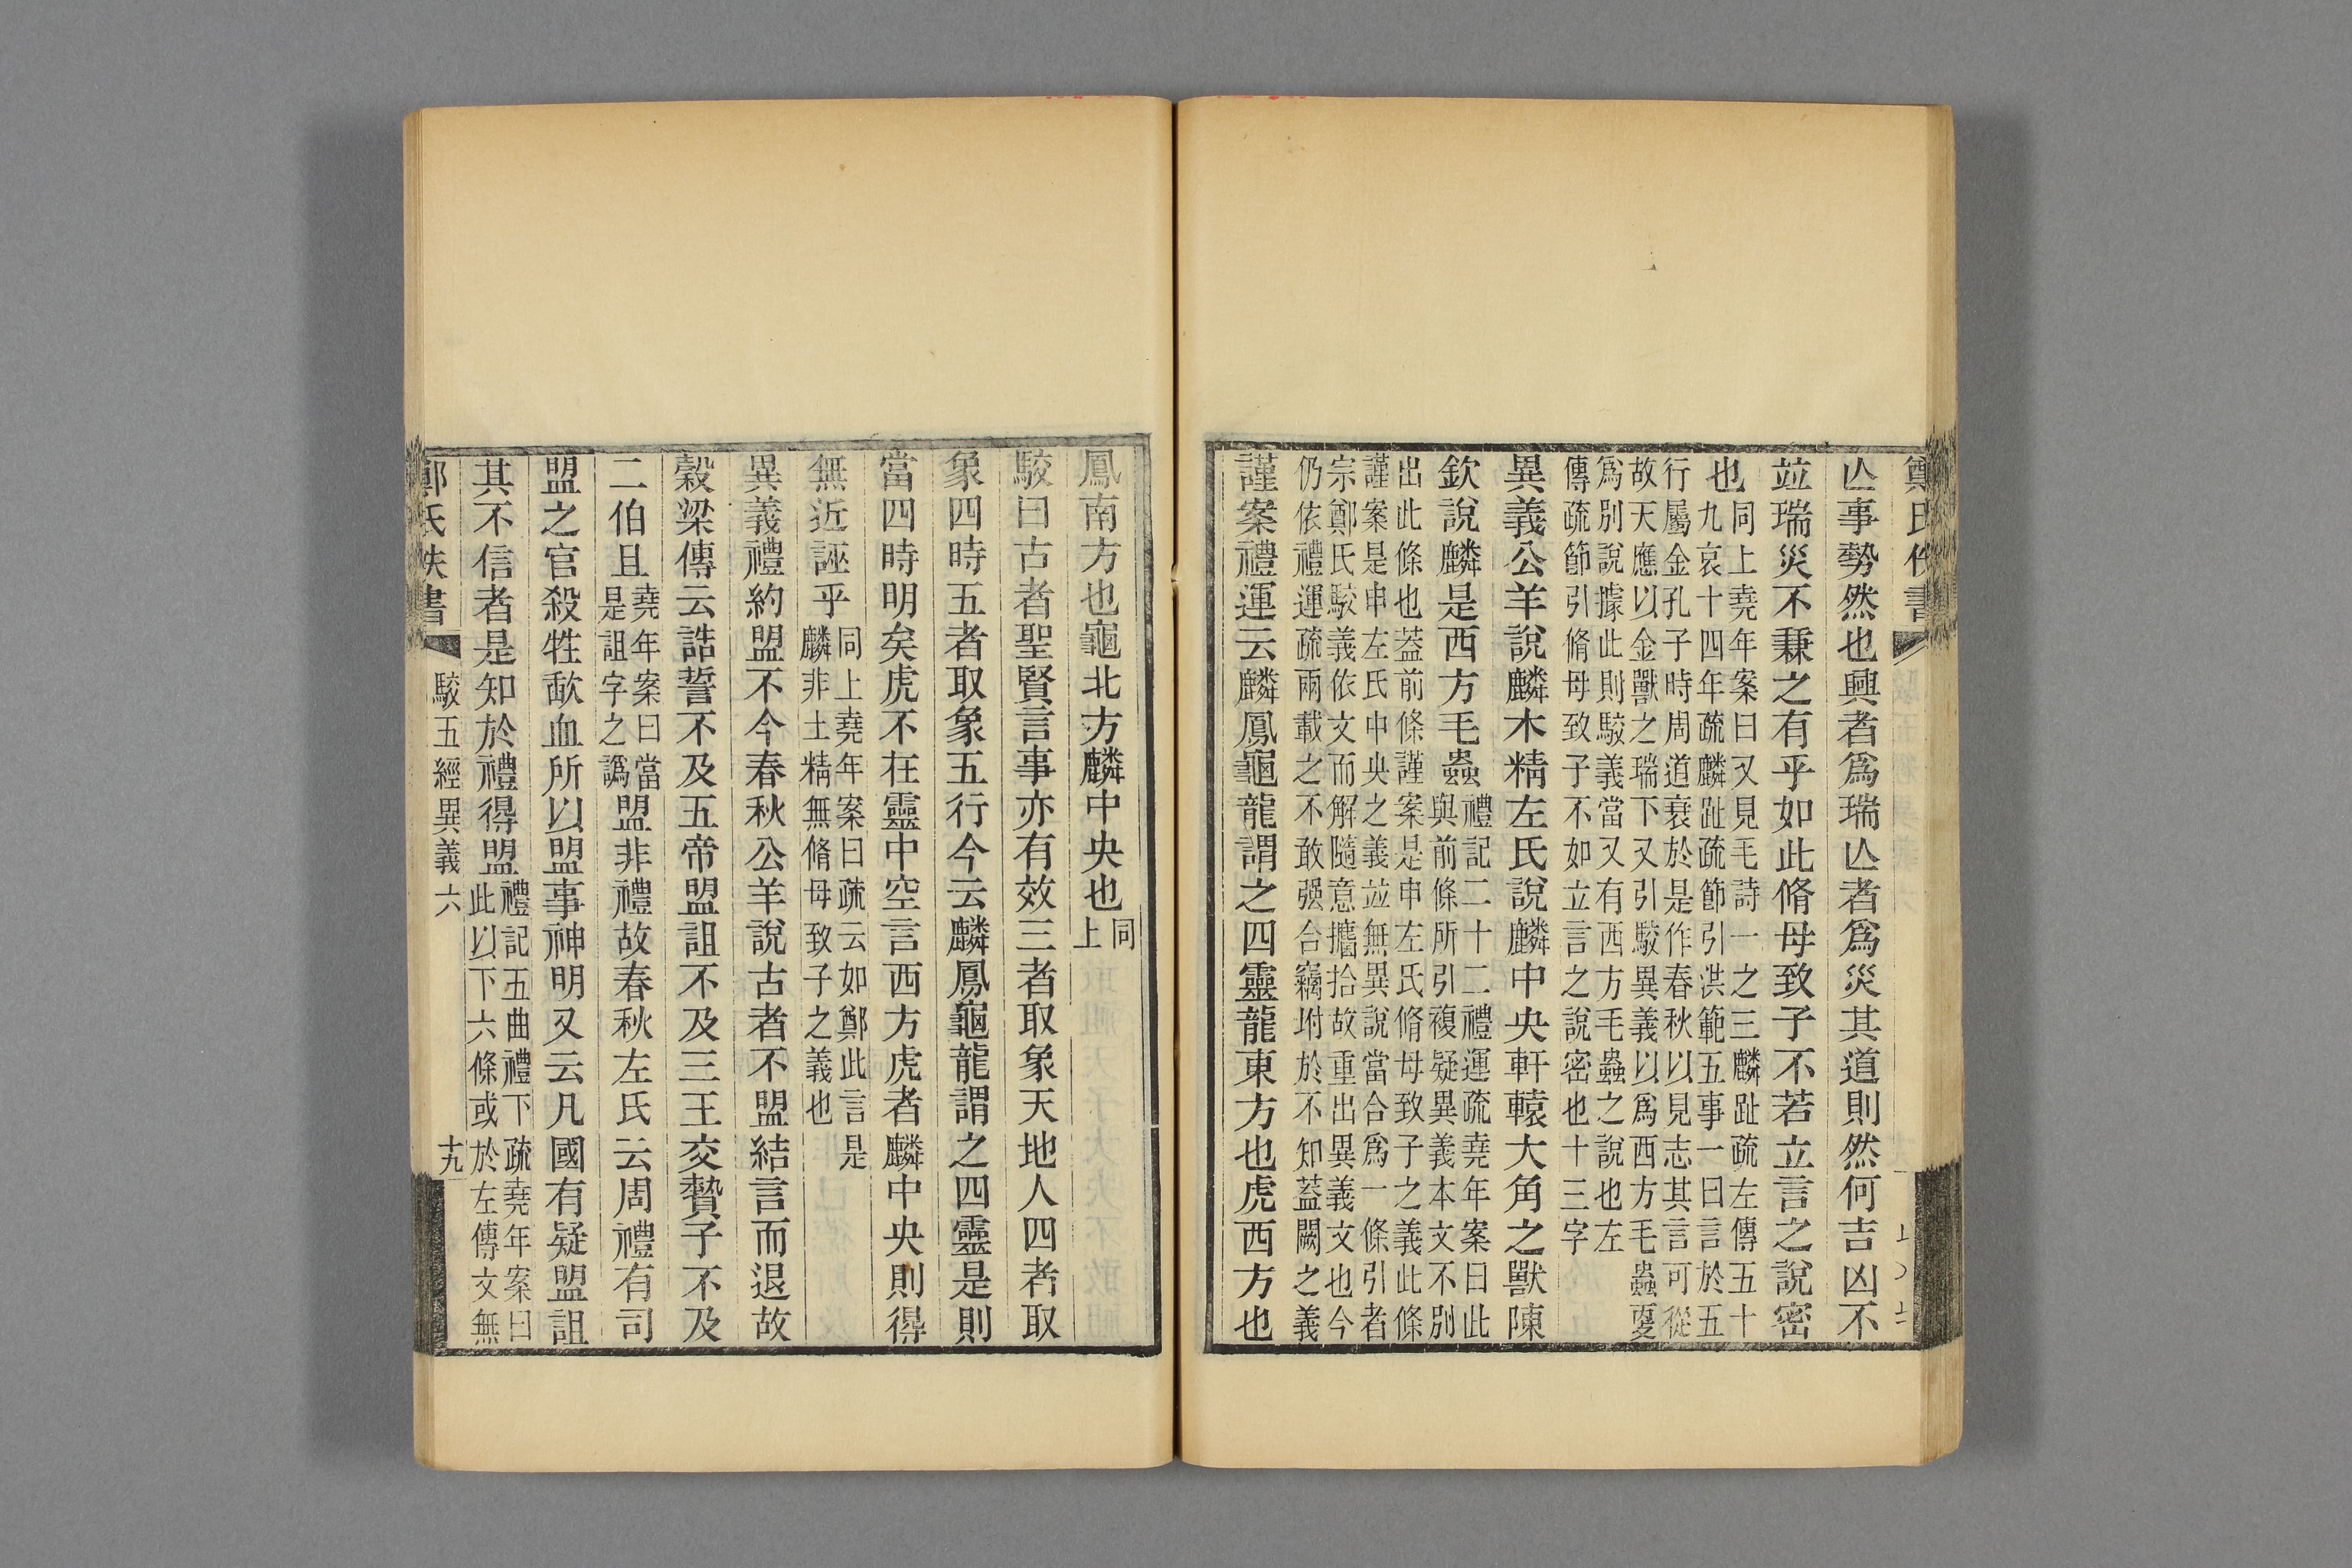 鄭氏佚書
亾事勢然也興者爲瑞亾者爲災其道則然何吉凶不
竝瑞災不兼之有乎如此脩母致子不若立言之說密
也同上堯年案曰又見毛詩一之三麟趾疏左傳五十
九哀十四年疏麟趾疏節引洪範五事一曰言於五
行屬金孔子時周道衰於是作春秋以見志其言可從
故天應以金獸之瑞下又引駮異義以爲西方毛蟲夏
爲別說據此則駮義當又有西方毛蟲之說也左
傳疏節引脩母致子不如立言之說密也十三字
異義公羊說麟木精左氏說麟中央軒轅大角之獸陳
欽說麟是西方毛蟲禮記二十二禮運疏堯年案曰此
與前條所引複疑異義本文不別
出此條也葢前條謹案是申左氏脩母致子之義此條
謹案是申左氏中央之義竝無異說當合爲一條引者
宗鄭氏駮義依文而解隨意攟拾故重出異義文也今
仍依禮運疏兩載之不敢强合竊坿於不知葢闕之義
謹案禮運云麟鳳龜龍謂之四靈龍東方也虎西方也
鳳南方也龜北方麟中央也同
上
駮曰古者聖賢言事亦有效三者取象天地人四者取
象四時五者取象五行今云麟鳳龜龍謂之四靈是則
當四時明矣虎不在靈中空言西方虎者麟中央則得
無近誣乎同上堯年案曰疏云如鄭此言是
麟非土精無脩母致子之義也
異義禮約盟不今春秋公羊說古者不盟結言而退故
穀梁傳云誥誓不及五帝盟詛不及三王交贄子不及
二伯且堯年案曰當
是詛字之譌盟非禮故春秋左氏云周禮有司
盟之官殺牲歃血所以盟事神明又云凡國有疑盟詛
其不信者是知於禮得盟禮記五曲禮下疏堯年案曰
此以下六條或於左傳文無
鄭氏佚書
駮五經異義六
十九